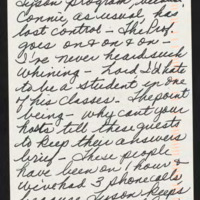 Tyson program because
Connie, as usual, has
lost control - The Prof.
goes on & on & on -
I've never heard such
whining - Lord I'd hate
to be a student in one
of his classes. The point
being - why can't your
hosts tell these guests
to keep their answers
brief - These people
have been on 1 hour &
we've had 3 phone calls
because Tyson keeps